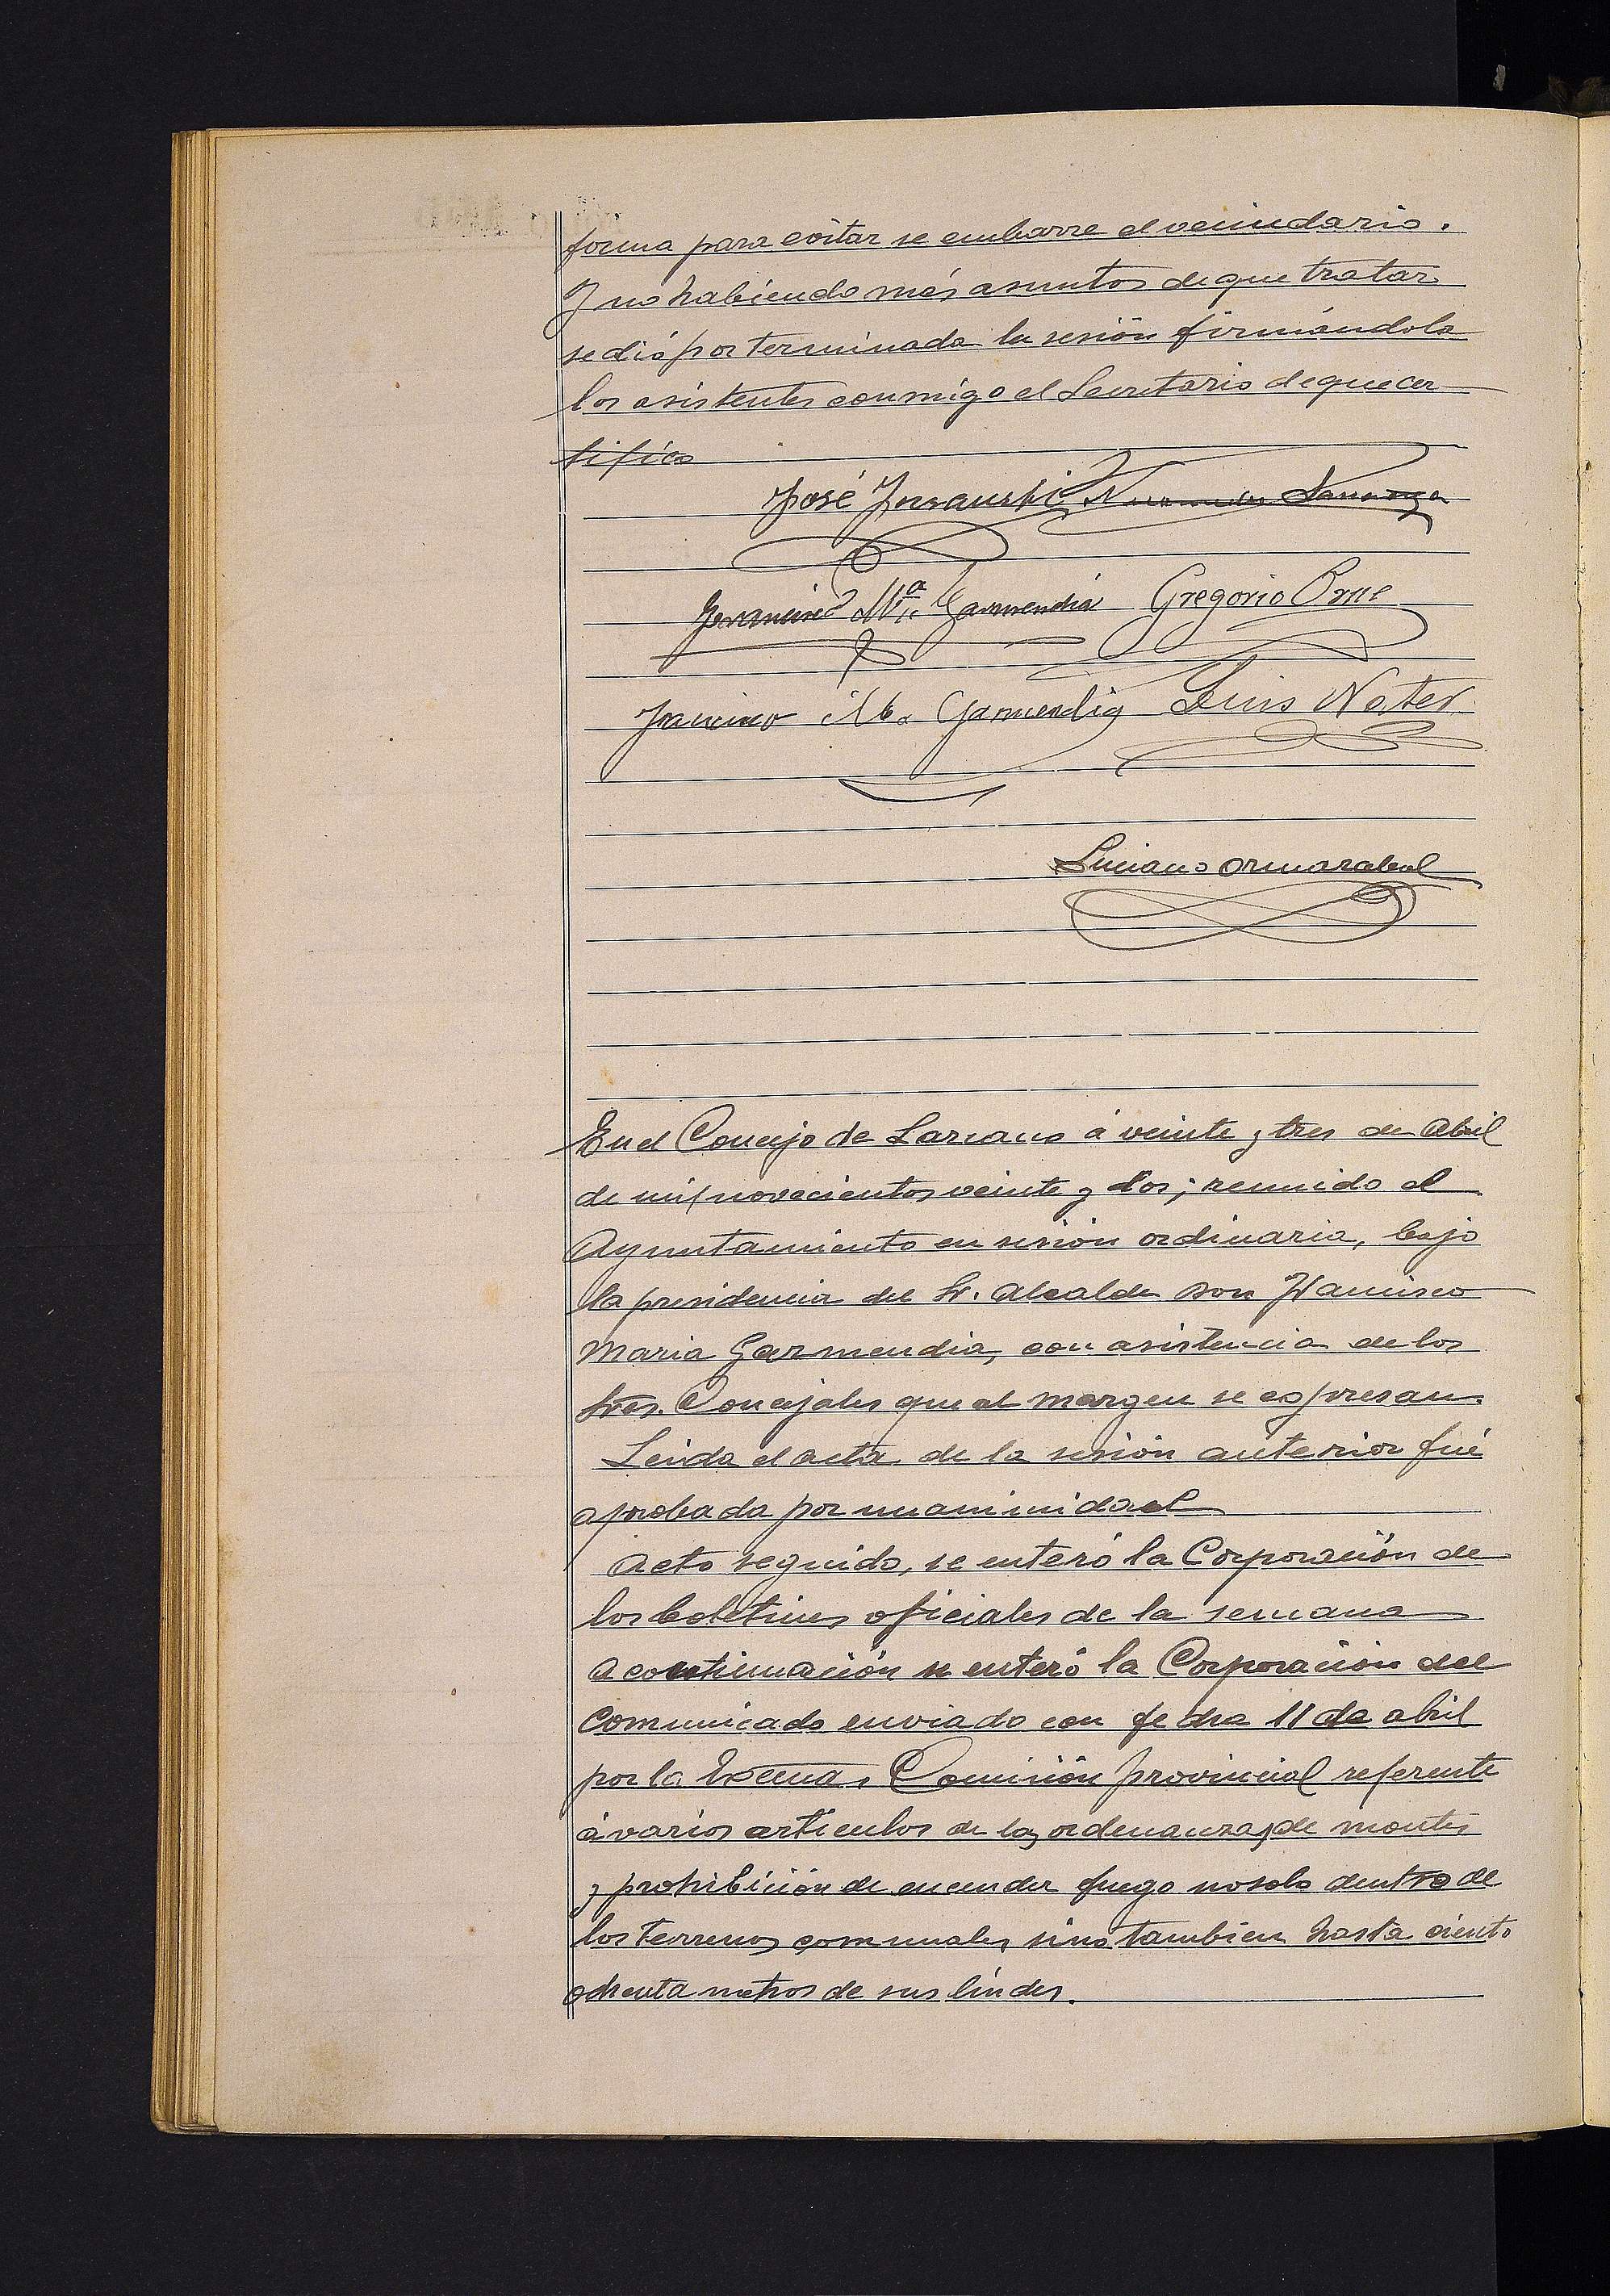 forma para evitar se embarre el vecindario.
Y no habiendo más asuntos de que tratar
se dió por terminada la sesión firmándola
los asistentes conmigo el Secretario de que cer-
tifico
José
Francisco Mª Garmendia Gregorio
Francisco Ma Garmendia Luis
Luciano Ormazabal
En el Concejo de Lazcano á veinte y tres de Abril
de mil novecientos veinte y dos; reunido el
Ayuntamiento en sesión ordinaria, bajo
la presidencia del Sr. Alcalde Don Francisco
Maria Garmendia, con asistencia de los
Sres. Concejales que al margen se expresan.
Leida el acta de la sesión anterior fué
aprobada por unanimidad
Acto seguido, se enteró la Corporación de
los boletines oficiales de la semana
A continuación se enteró la Corporación del
Comunicado enviado con fecha 11 de abril
por la Excma. Comisión provincial referente
á varios artículos de las ordenanzas de montes
y prohibición de encender fuego no solo dentro de
los terrenos comunales sino tambien hasta ciento
ochenta metros de sus lindes.